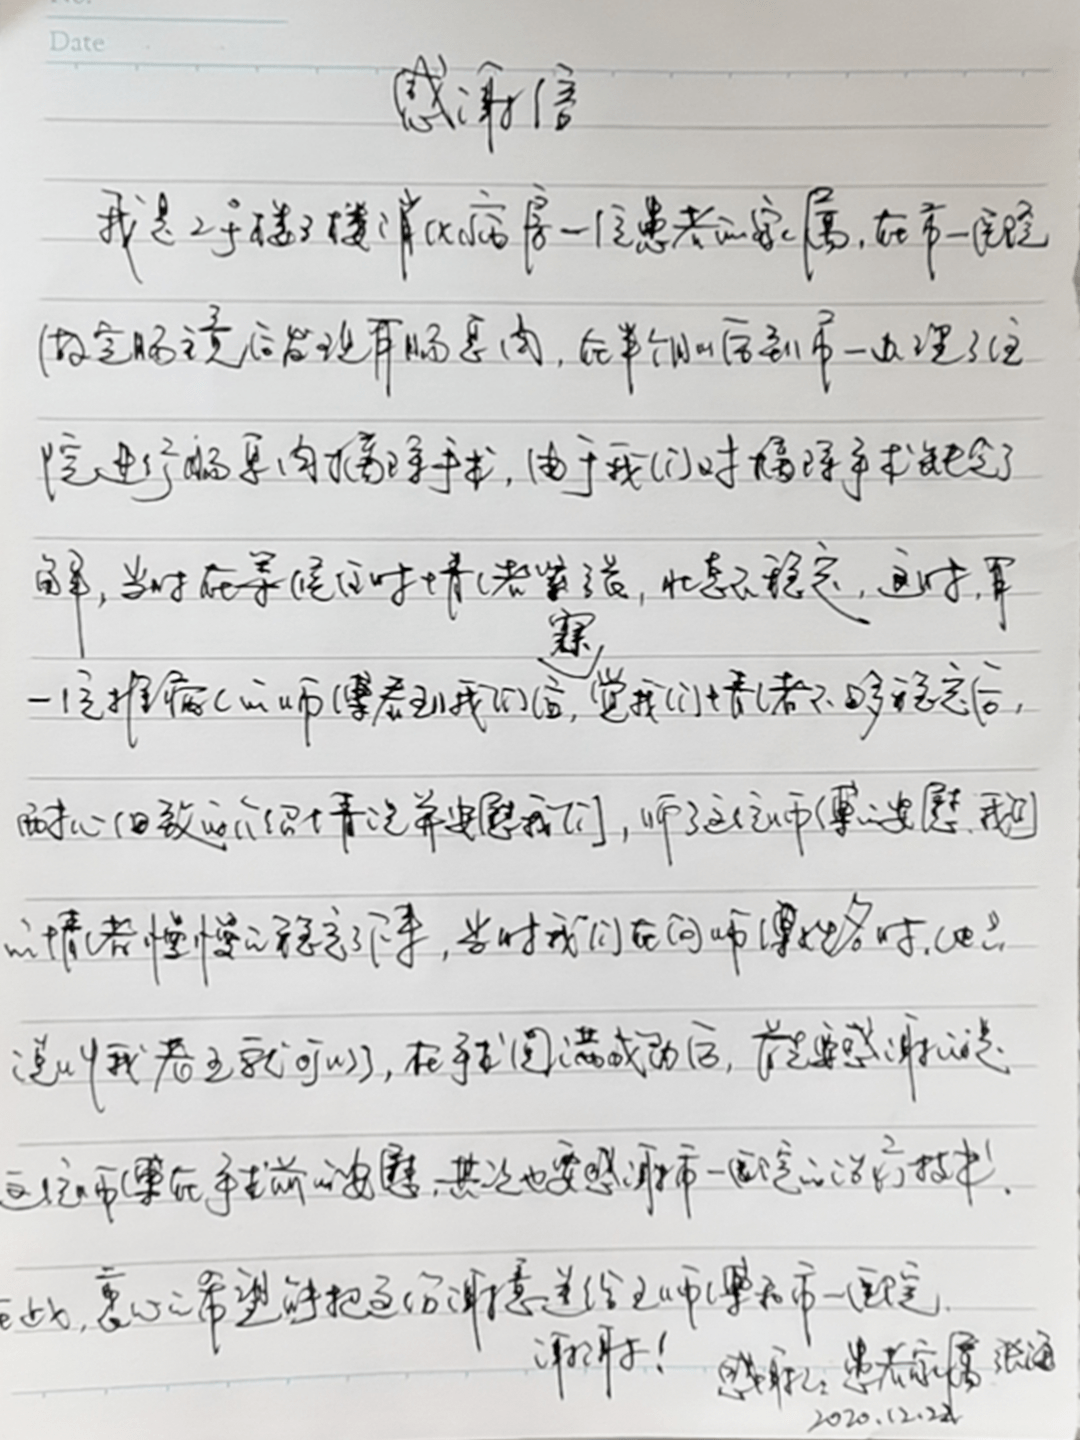 Date
感谢信
我是2号楼3楼消化病房一位患者的家属,在市一医院
做完肠镜后发现有肠息肉,在半个月后到市一办理了住
院进行肠息肉摘除手术,由于我们对摘除手术缺乏了
解,当时在等候位时情绪紧张,状态不稳定,这时,有
一位推病人的师傅看到我们后,察觉我们情绪不够稳定后,
耐心细致的介绍情况并安慰我们,听了这位师傅的安慰,我们
的情绪慢慢的稳定了下来,当时我们在问师傅姓名时,他只
说叫我老王就可以了,在手术圆满成功后,首先要感谢的是
这位师傅在手术前的安慰,其次也要感谢市一医院的治疗技术!
在此,衷心的希望能把这份谢意送给王师傅和市一医院.
谢谢!
感谢人:患者家属 张
2020.12.22